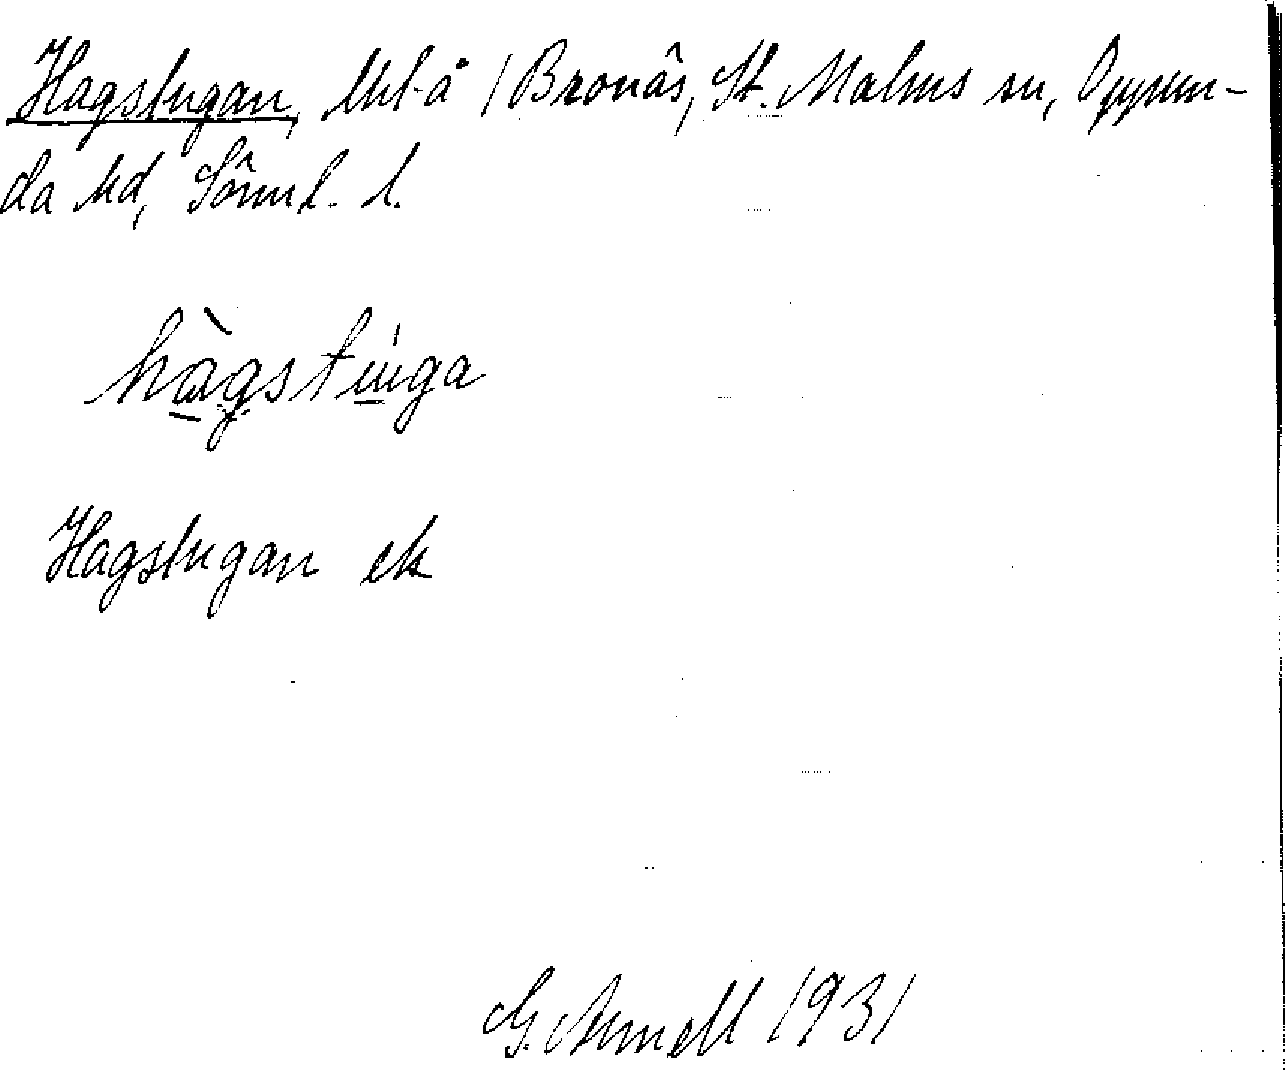 Hagstugan, lht å /Bronäs, St. Malms sn, Oppun-
da hd, Söml. l.
hàgstùga
Hagstugan ek
G. Amnell 1931